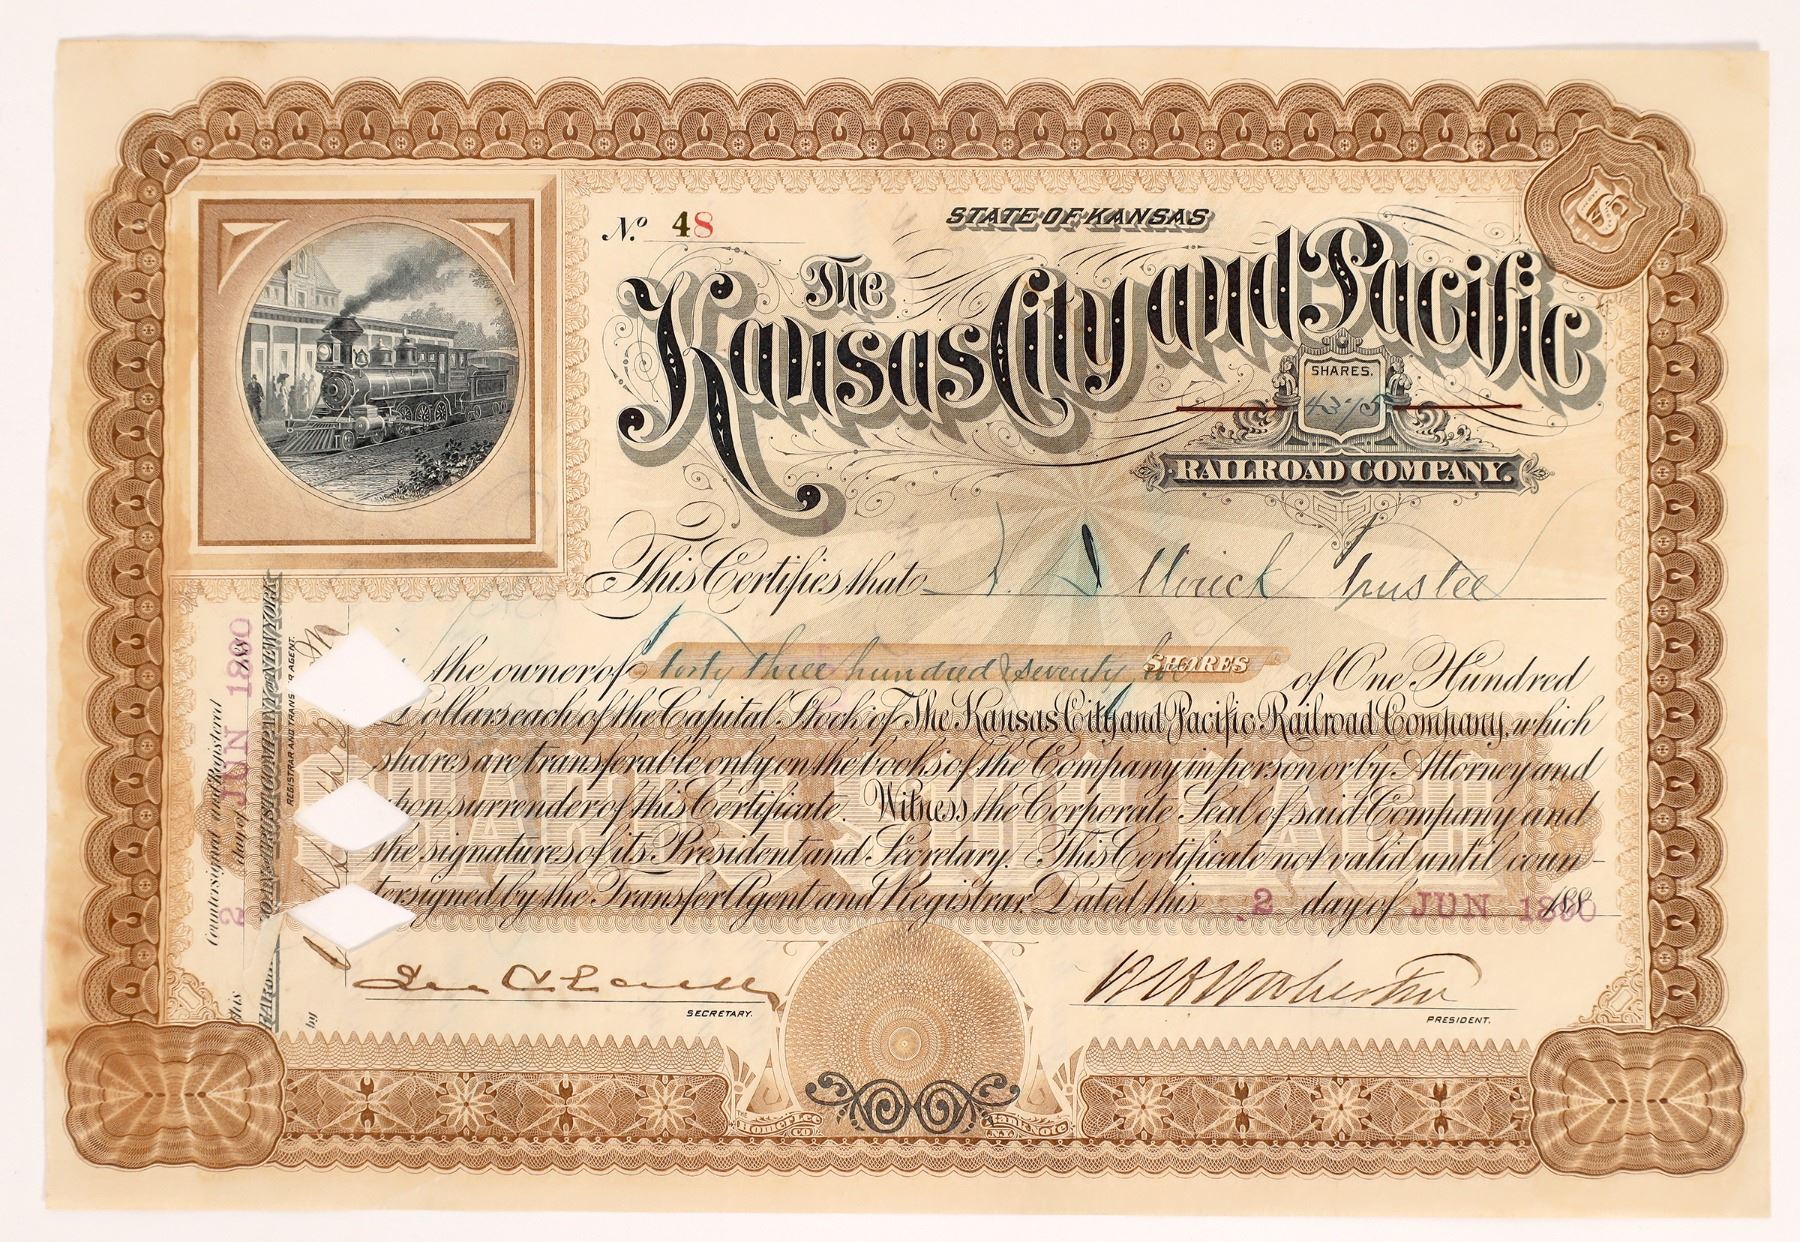 No. 48
STATE OF KANSAS
The
Kansas City and Pacific
SHARES.
4375
RAILROAD COMPANY.
This Certifies that Trustee
is the owner of forty three hundred & seventy five SHARES of One Hundred
Dollars each of the Capital Stock of The Kansas City and Pacific Railroad Company, which
shares are transferable only on the books of the Company in person or by Attorney and
upon surrender of this Certificate. Witness the Corporate Seal of said Company and
the signatures of its President and Secretary. This Certificate not valid until coun-
tersigned by the Transfer Agent and Registrar. Dated this 2 day of JUN 1890 188
SHARES $100 EACH
SECRETARY.
PRESIDENT.
Countersigned and Registered
this 2 day of JUN 1890
TRUST COMPANY OF NEW YORK
REGISTRAR AND TRANSFER AGENT.
by
Homer Lee Bank Note
CO. N.Y.